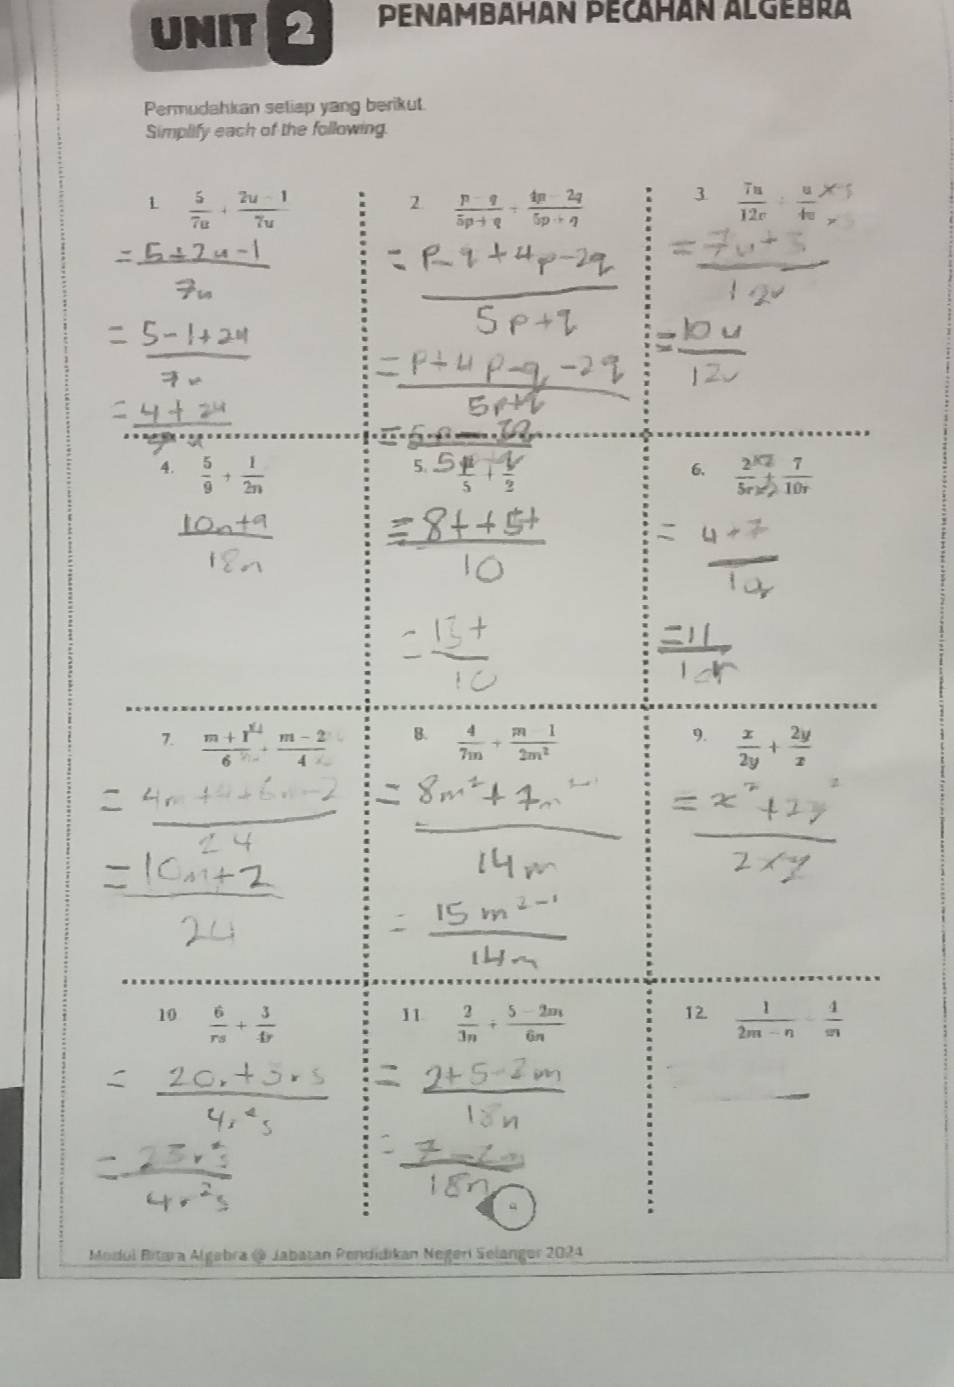 UNIT 2 PENAMBAHAN PECAHAN ALGEBRA
Permudahkan setiap yang berikut.
Simplify each of the following.
1. 5/7u + (2u - 1)/7u
= (5+2u-1)/7u
= (5-1+2u)/7u
= (4+2u)/7u
2. (p - q)/(5p + q) + (4p - 2q)/(5p + q)
= (p-q+4p-2q)/(5p+q)
= (p+4p-q-2q)/(5p+q)
= (5p-3q)/(5p+q)
3. 7u/12v + u/4v
= (7u+3)/12v
= 10u/12v
4. 5/9 + 1/2n
(10n+9)/18n
5.
= (8t+5t)/10
= 13t/10
6. 2×2/5r×2 + 7/10r
= (4+7)/10r
= 11/10r
7. (m + 1)/6 + (m - 2)/4
= (4m+4+6m-2)/24
= (10m+2)/24
8. 4/7m + (m - 1)/2m²
= (8m²+7m²⁻¹)/14m
= 15m²⁻¹/14m
9. x/2y + 2y/x
= (x²+2y²)/2xy
10 6/rs + 3/4r
= (20r+3rs)/4r²s
= 23r²s/4r²s
11. 2/3n + (5 - 2m)/6n
= (2+5-2m)/18n
= (7-2m)/18n
12. 1/(2m - n) 4/m
Modul Bitara Algebra @ Jabatan Pendidikan Negeri Selangor 2024